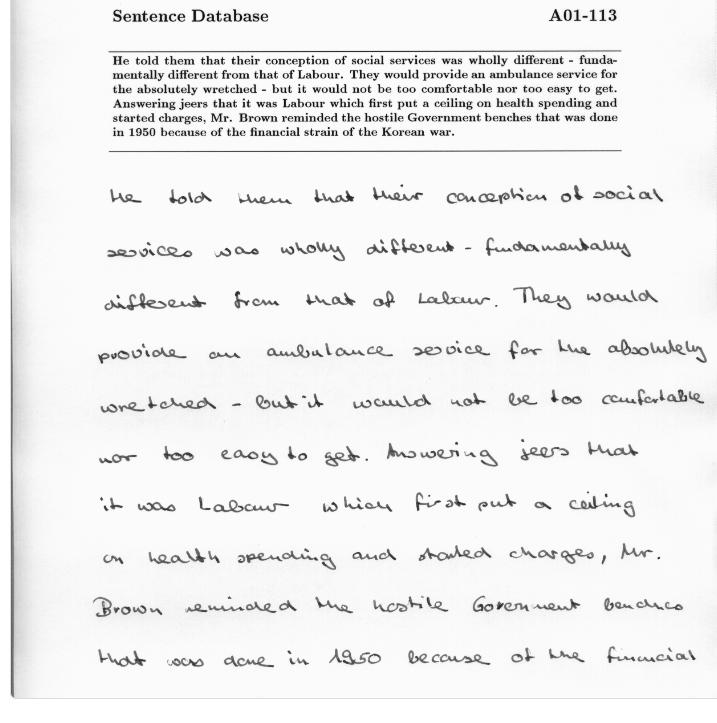 Sentence Database A01-113
He told them that their conception of social services was wholly different - funda-
mentally different from that of Labour. They would provide an ambulance service for
the absolutely wretched - but it would not be too comfortable nor too easy to get.
Answering jeers that it was Labour which first put a ceiling on health spending and
started charges, Mr. Brown reminded the hostile Government benches that was done
in 1950 because of the financial strain of the Korean war.
He told them that their conception of social
services was wholly different - fundamentally
different from that of Labour. They would
provide an ambulance service for the absolutely
wretched - but it would not be too comfortable
nor too easy to get. Answering jeers that
it was Labour which first put a ceiling
on health spending and started charges, Mr.
Brown reminded the hostile Government benches
that was done in 1950 because of the financial